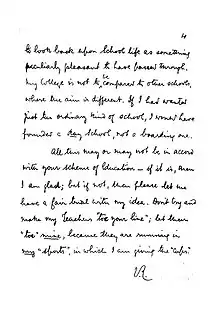 4
to look back upon School life as something
peculiarly pleasant to have passed through.
My College is not to be compared to other schools,
where the aim is different. If I had wanted
just the ordinary kind of school, I would have
founded a Day School, not a boarding one.
All this may or may not be in accord
with your scheme of Education — if it is, then
I am glad; but if not, then please let me
have a fair trial with my idea. Don't try and
make my Teachers "toe your line"; let them
"toe" mine, because they are running in
my "sports", in which I am giving the "cups".